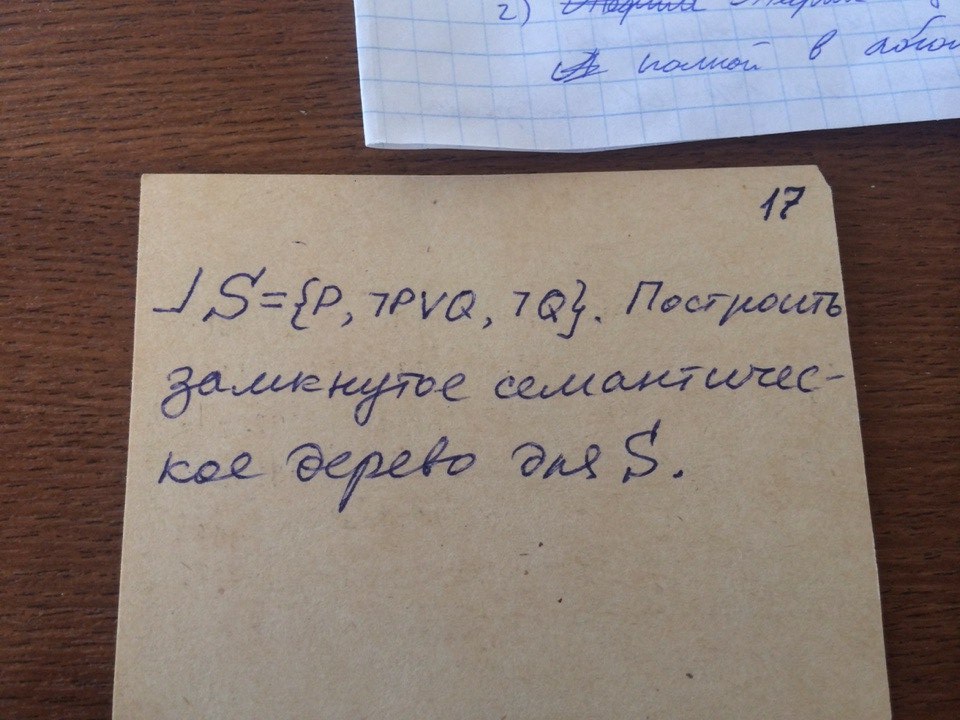 2)
полной в
17
S={P, ¬P∨Q, ¬Q}. Построить
замкнутое семантичес-
кое дерево для S.